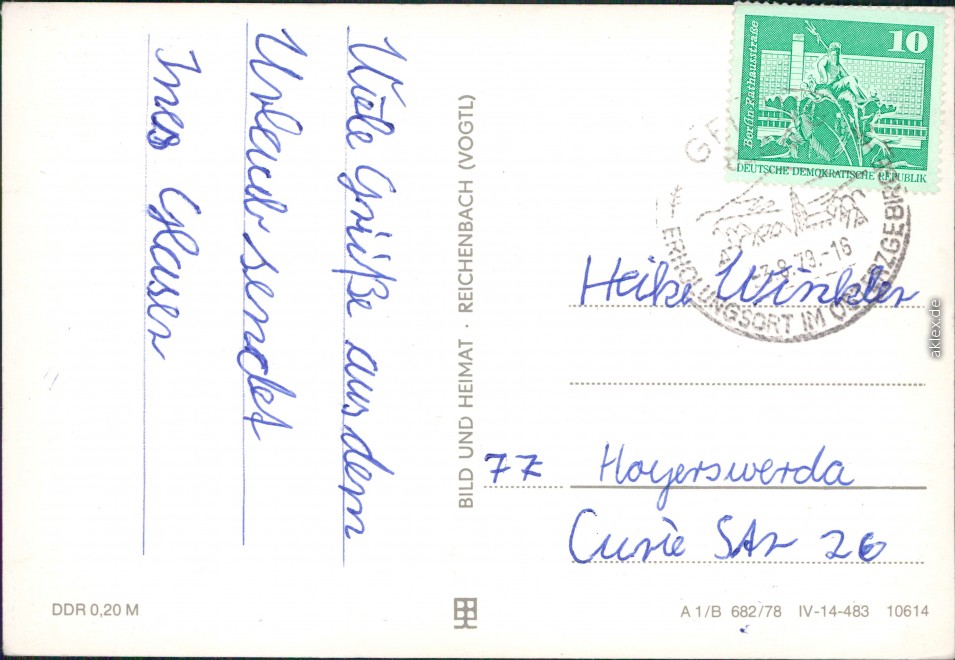 Viele Grüße aus dem
Urlaub sendet
Ines Glaser
BILD UND HEIMAT · REICHENBACH (VOGTL)
Berlin-Rathausstraße
10
DEUTSCHE DEMOKRATISCHE REPUBLIK
ERHOLUNGSORT IM OBERZGEBIRGE
.8.79.-16
Heike Winkler
77 Hoyerswerda
Curie Str 26
DDR 0,20 M
A 1/B 682/78 IV-14-483 10614
aklex.de